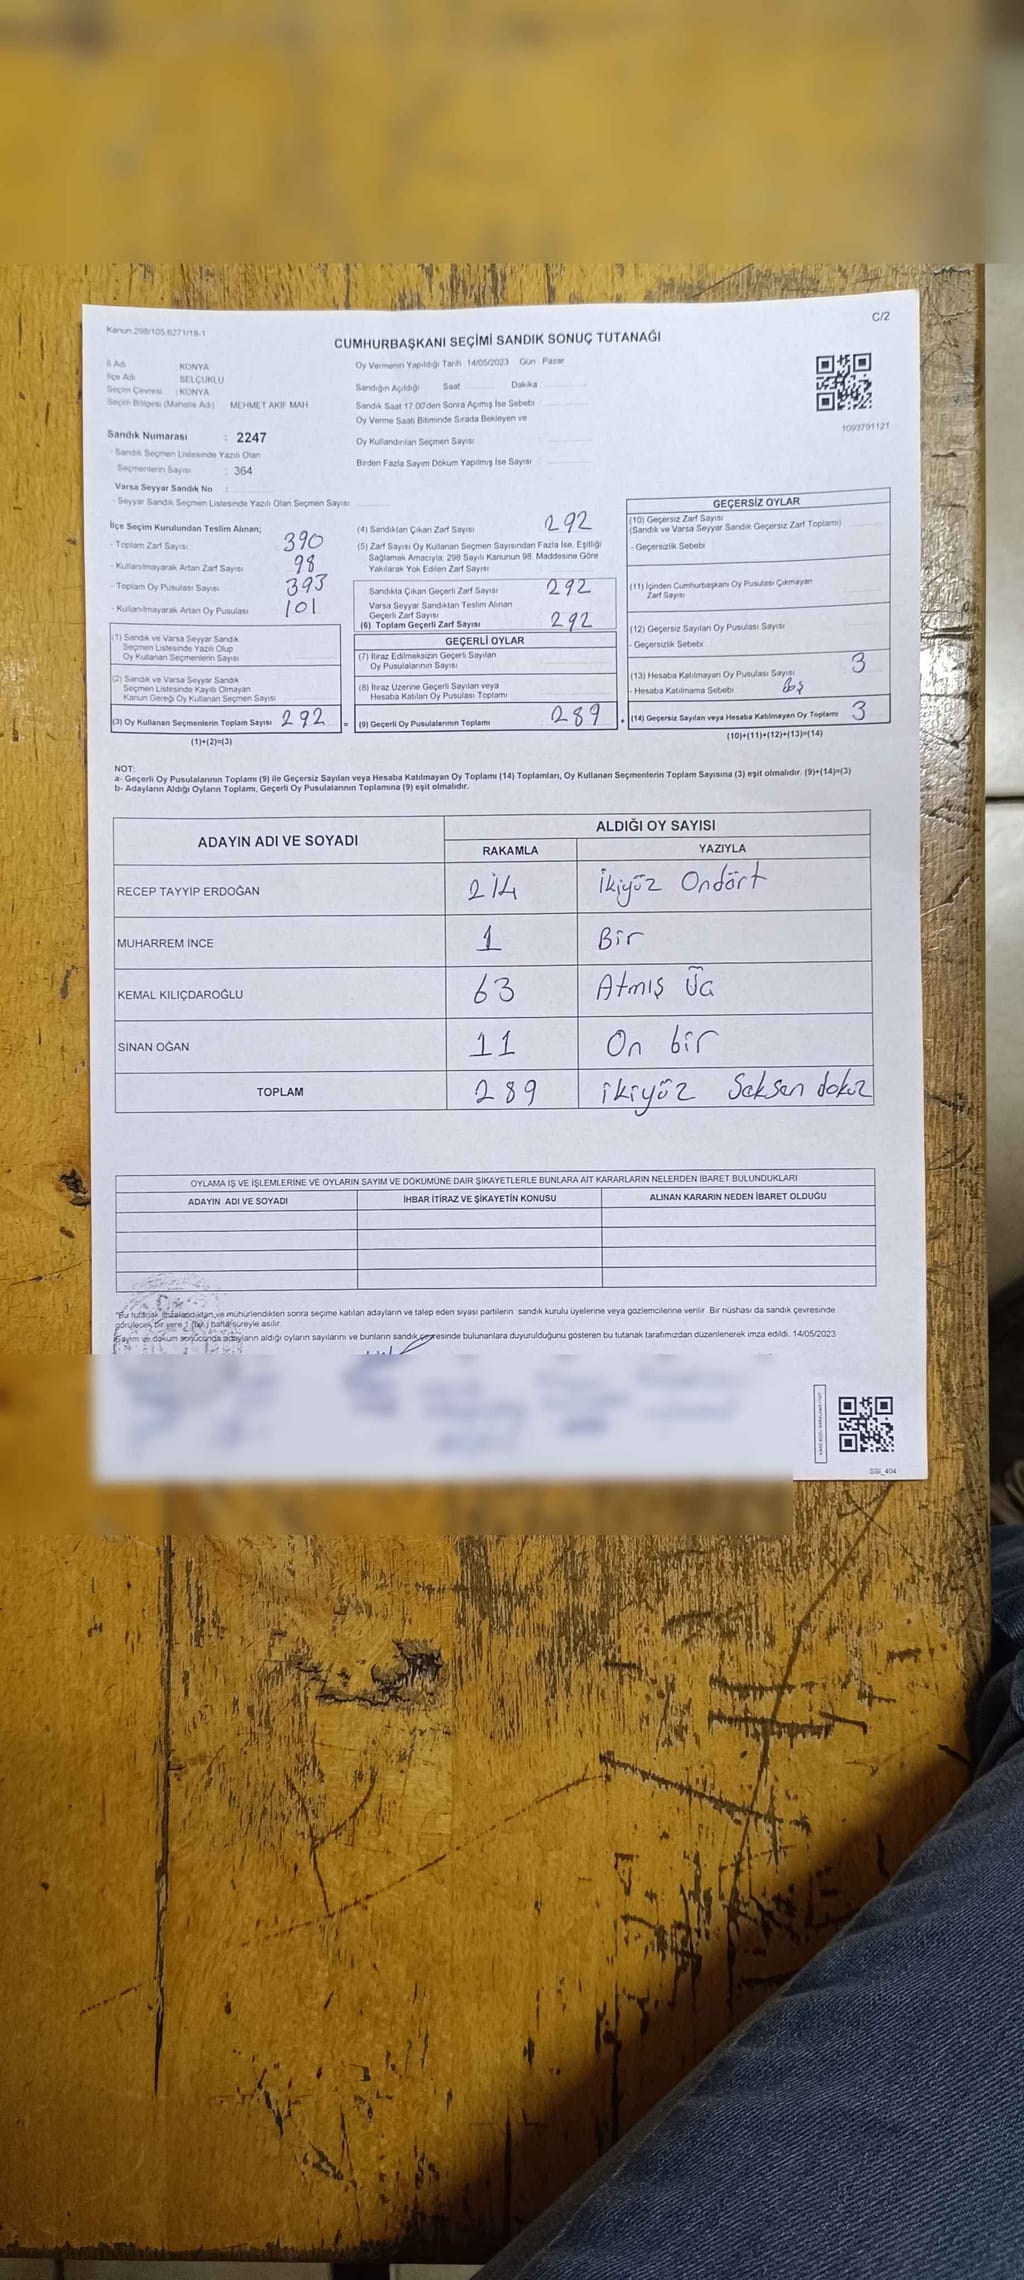 Kanun 298/105 6271/18-1
C/2
CUMHURBAŞKANI SEÇİMİ SANDIK SONUÇ TUTANAĞI
İl Adı KONYA
İlçe Adı SELÇUKLU
Seçim Çevresi : KONYA
Seçim Bölgesi (Mahalle Adı) MEHMET AKİF MAH
Sandık Numarası : 2247
- Sandık Seçmen Listesinde Yazılı Olan
Seçmenlerin Sayısı 364
Varsa Seyyar Sandık No :
- Seyyar Sandık Seçmen Listesinde Yazılı Olan Seçmen Sayısı
Oy Vermenin Yapıldığı Tarih 14/05/2023 Gün Pazar
Sandığın Açıldığı Saat Dakika
Sandık Saat 17.00'den Sonra Açımış İse Sebebi
Oy Verme Saati Bitiminde Sırada Bekleyen ve
Oy Kullandırılan Seçmen Sayısı
Birden Fazla Sayım Döküm Yapılmış İse Sayısı
1093791121
İlçe Seçim Kurulundan Teslim Alınan;
- Toplam Zarf Sayısı 390
- Kullanılmayarak Artan Zarf Sayısı 98
- Toplam Oy Pusulası Sayısı 393
- Kullanılmayarak Artan Oy Pusulası 101
(1) Sandık ve Varsa Seyyar Sandık
Seçmen Listesinde Yazılı Olup
Oy Kullanan Seçmenlerin Sayısı
(2) Sandık ve Varsa Seyyar Sandık
Seçmen Listesinde Kayıtlı Olmayan
Kanun Gereği Oy Kullanan Seçmen Sayısı
(3) Oy Kullanan Seçmenlerin Toplam Sayısı 292 =
(1)+(2)=(3)
(4) Sandıktan Çıkan Zarf Sayısı 292
(5) Zarf Sayısı Oy Kullanan Seçmen Sayısından Fazla İse, Eşitliği
Sağlamak Amacıyla; 298 Sayılı Kanunun 98. Maddesine Göre
Yakılarak Yok Edilen Zarf Sayısı
Sandıkta Çıkan Geçerli Zarf Sayısı 292
Varsa Seyyar Sandıktan Teslim Alınan
Geçerli Zarf Sayısı
(6) Toplam Geçerli Zarf Sayısı 292
GEÇERLİ OYLAR
(7) İtiraz Edilmeksizin Geçerli Sayılan
Oy Pusulalarının Sayısı
(8) İtiraz Üzerine Geçerli Sayılan veya
Hesaba Katılan Oy Pusulası Toplamı
(9) Geçerli Oy Pusulalarının Toplamı 289 +
GEÇERSİZ OYLAR
(10) Geçersiz Zarf Sayısı
(Sandık ve Varsa Seyyar Sandık Geçersiz Zarf Toplamı)
- Geçersizlik Sebebi
(11) İçinden Cumhurbaşkanı Oy Pusulası Çıkmayan
Zarf Sayısı
(12) Geçersiz Sayılan Oy Pusulası Sayısı
- Geçersizlik Sebebi
(13) Hesaba Katılmayan Oy Pusulası Sayısı 3
- Hesaba Katılmama Sebebi Boş
(14) Geçersiz Sayılan veya Hesaba Katılmayan Oy Toplamı 3
(10)+(11)+(12)+(13)=(14)
NOT:
a- Geçerli Oy Pusulalarının Toplamı (9) ile Geçersiz Sayılan veya Hesaba Katılmayan Oy Toplamı (14) Toplamları, Oy Kullanan Seçmenlerin Toplam Sayısına (3) eşit olmalıdır. (9)+(14)=(3)
b- Adayların Aldığı Oyların Toplamı, Geçerli Oy Pusulalarının Toplamına (9) eşit olmalıdır.
ADAYIN ADI VE SOYADI ALDIĞI OY SAYISI
RAKAMLA YAZIYLA
RECEP TAYYİP ERDOĞAN 214 İkiyüz Ondört
MUHARREM İNCE 1 Bir
KEMAL KILIÇDAROĞLU 63 Atmış Üç
SİNAN OĞAN 11 On bir
TOPLAM 289 ikiyüz Seksen dokuz
OYLAMA İŞ VE İŞLEMLERİNE VE OYLARIN SAYIM VE DÖKÜMÜNE DAİR ŞİKAYETLERLE BUNLARA AİT KARARLARIN NELERDEN İBARET BULUNDUKLARI
ADAYIN ADI VE SOYADI İHBAR İTİRAZ VE ŞİKAYETİN KONUSU ALINAN KARARIN NEDEN İBARET OLDUĞU
"Bu tutanak imzalandıktan ve mühürlendikten sonra seçime katılan adayların ve talep eden siyasi partilerin sandık kurulu üyelerine veya gözlemcilerine verilir. Bir nüshası da sandık çevresinde
görülecek bir yere 1 (bir) hafta süreyle asılır.
Sayım ve döküm sonucunda adayların aldığı oyların sayılarını ve bunların sandık çevresinde bulunanlara duyurulduğunu gösteren bu tutanak tarafımızdan düzenlenerek imza edildi. 14/05/2023
SSI_404